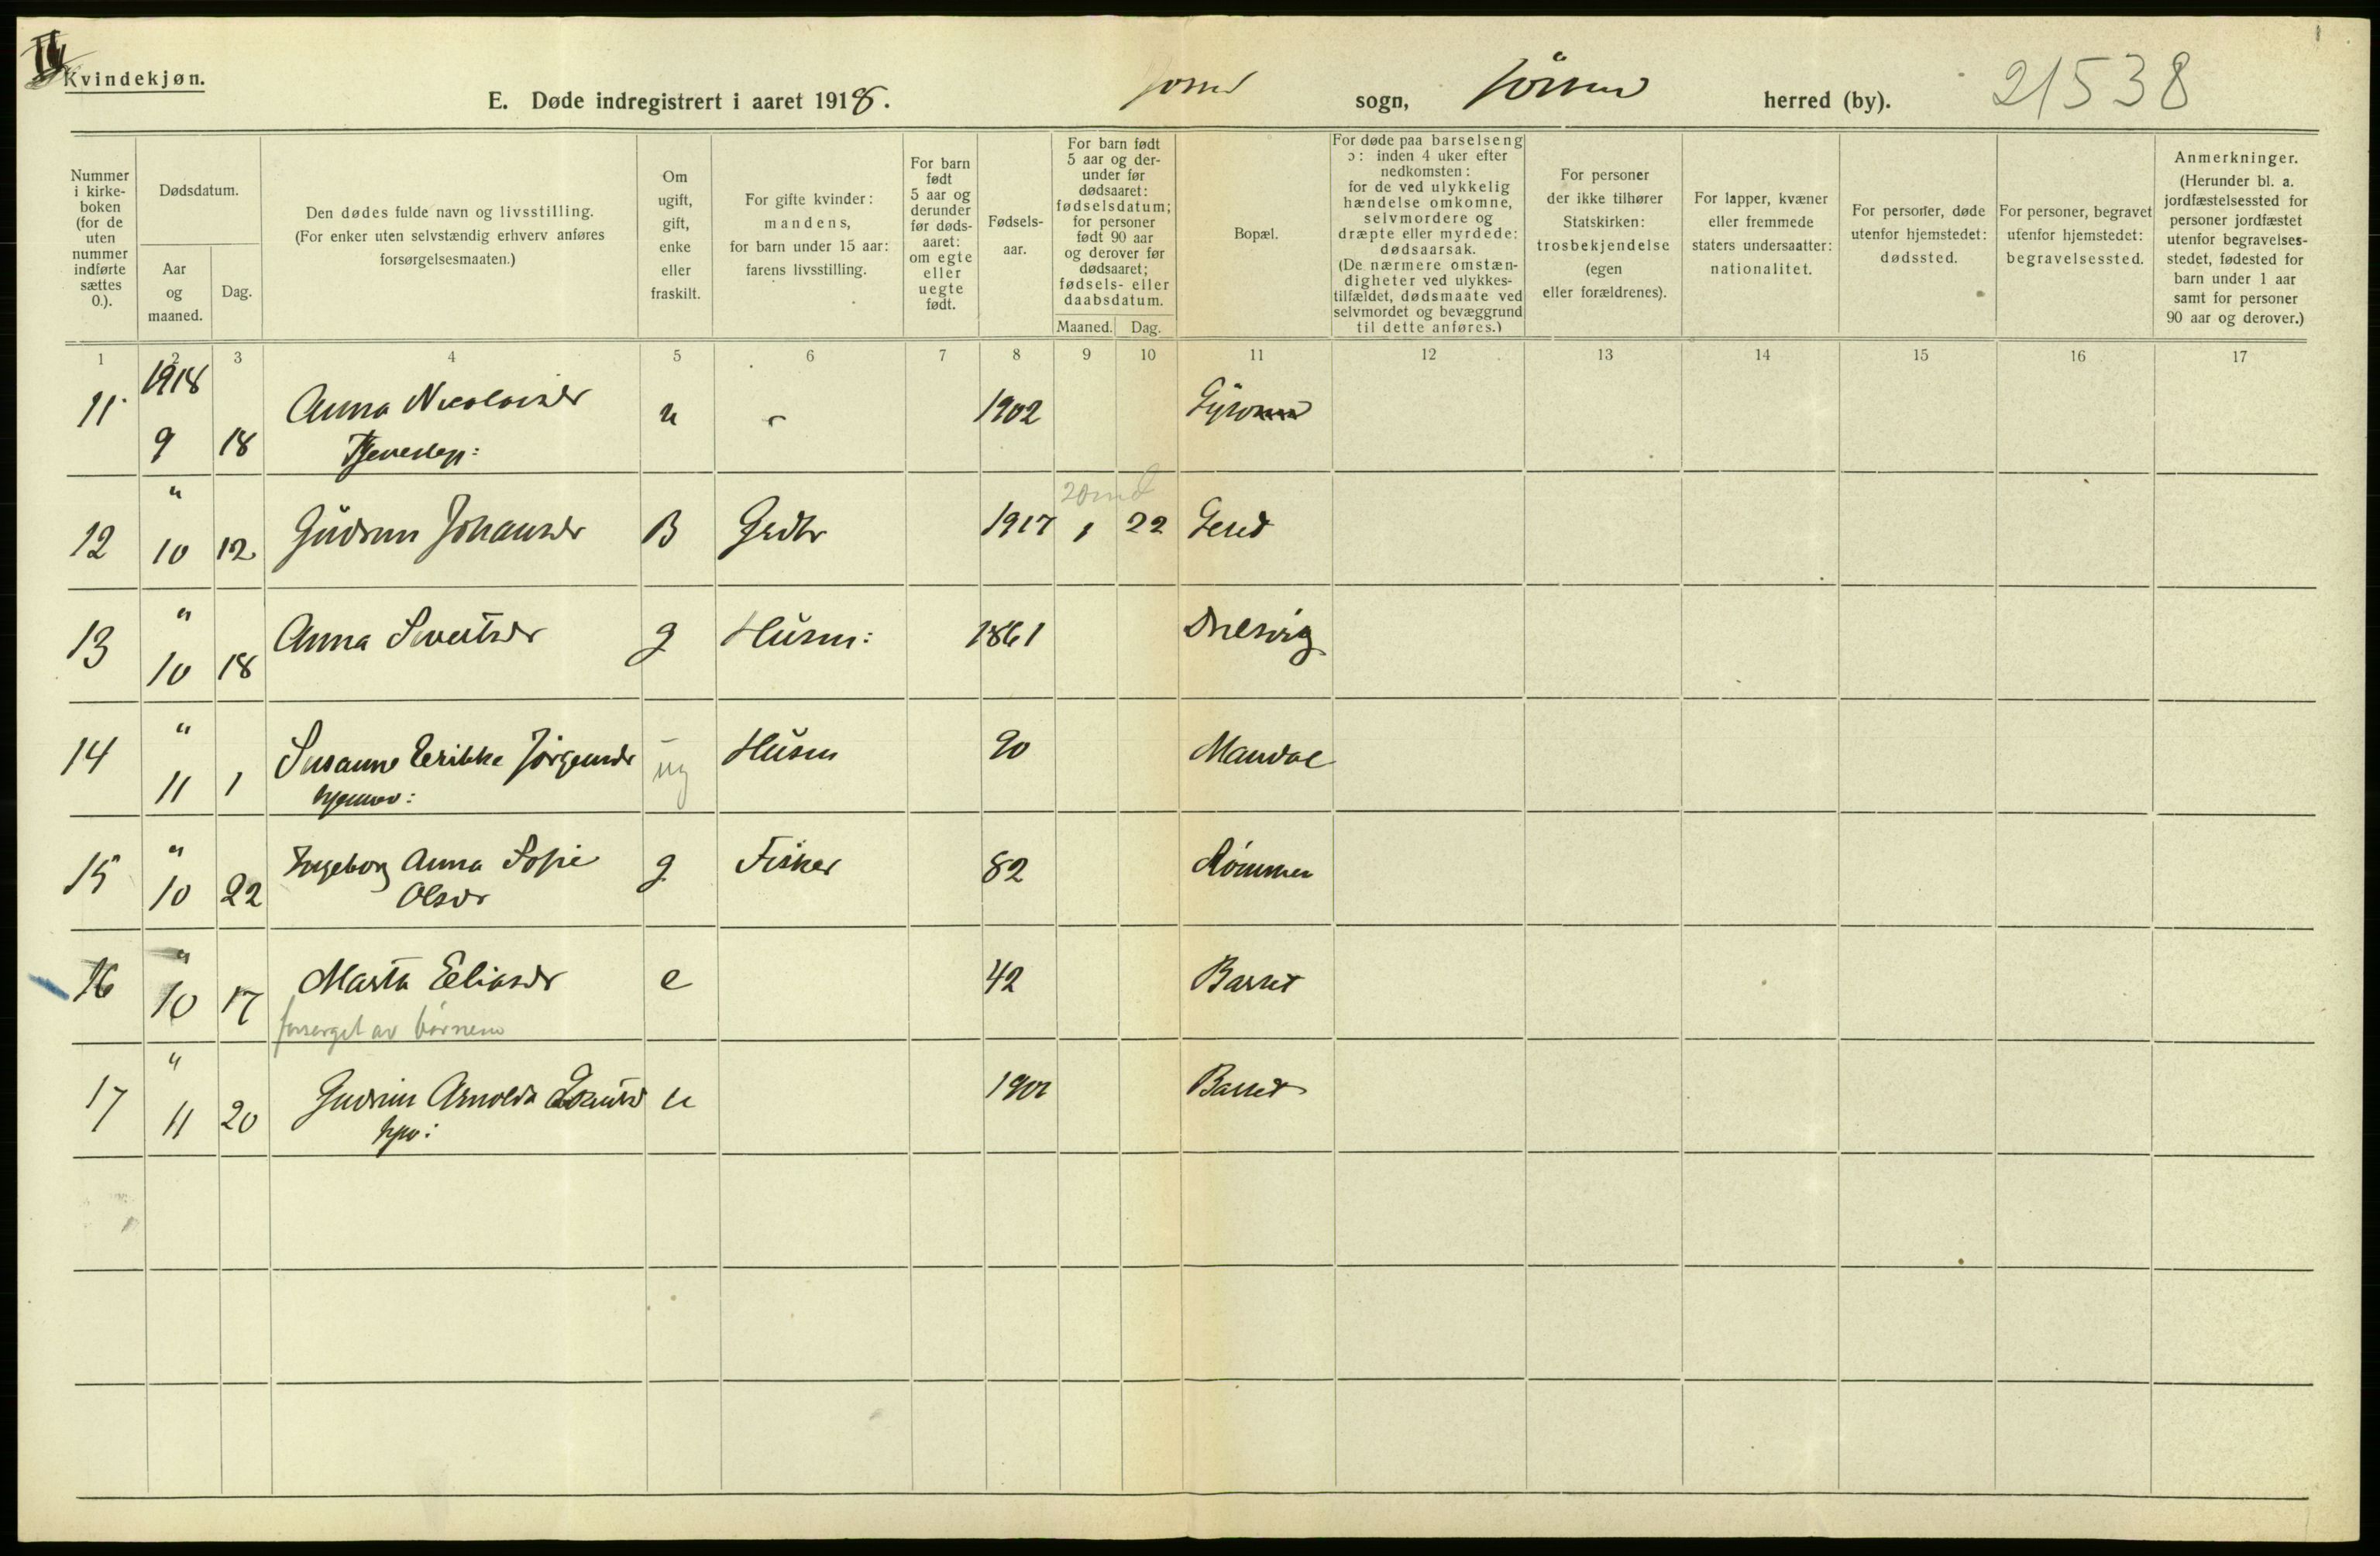 Kvindekjøn.
E. Døde indregistrert i aaret 1918. sogn, herred (by). 21538
Nummer i kirke-boken (for de uten nummer indførte sættes 0.).
Dødsdatum.
Aar og maaned.
Dag.
Den dødes fulde navn og livsstilling.
(For enker uten selvstændig erhverv anføres forsørgelsesmaaten.)
Om ugift, gift, enke eller fraskilt.
For gifte kvinder: mandens, for barn under 15 aar: farens livsstilling.
For barn født 5 aar og derunder før døds-aaret: om egte eller uegte født.
Fødsels-aar.
For barn født 5 aar og der-under før dødsaaret: fødselsdatum; for personer født 90 aar og derover før dødsaaret; fødsels- eller daabsdatum.
Maaned. Dag.
Bopæl.
For døde paa barselseng ɔ: inden 4 uker efter nedkomsten: for de ved ulykkelig hændelse omkomne, selvmordere og dræpte eller myrdede: dødsaarsak. (De nærmere omstæn-digheter ved ulykkes-tilfældet, dødsmaate ved selvmordet og bevæggrund til dette anføres.)
For personer der ikke tilhører Statskirken: trosbekjendelse (egen eller forældrenes).
For lapper, kvæner eller fremmede staters undersaatter: nationalitet.
For personer, døde utenfor hjemstedet: dødssted.
For personer, begravet utenfor hjemstedet: begravelsessted.
Anmerkninger. (Herunder bl. a. jordfæstelsessted for personer jordfæstet utenfor begravelses-stedet, fødested for barn under 1 aar samt for personer 90 aar og derover.)
1 2 3 4 5 6 7 8 9 10 11 12 13 14 15 16 17
1918
11 9 18 Anna Nicolaisen u 1902
"
20 md
12 10 12 Gudrun Johansen B Grdbr 1917 1 22
"
13 10 18 Anna Sivertsen g Husm: 1861
"
14 11 1 Susanne Jørgensen ug Husm 90 Mandal
"
15 10 22 Ingeborg Anna Sofie Olsen g Fisker 82
"
16 10 17 Marta Eeliasen e 42
forsørget av børnene
"
17 11 20 Gudrun Arnolda u